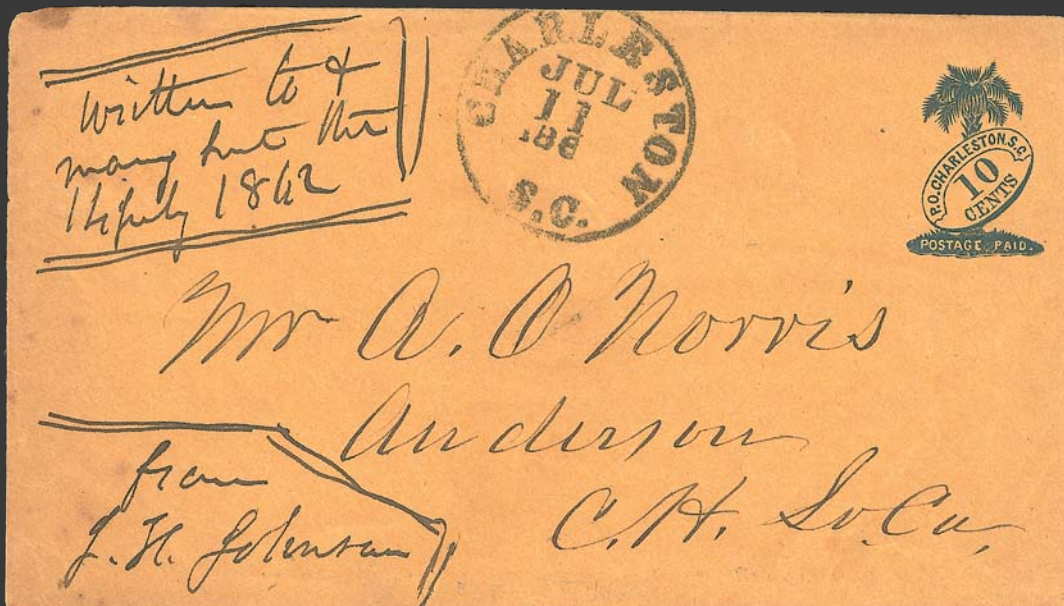 written to &
many
July 1862
CHARLESTON
JUL
11
186
S.C.
P.O. CHARLESTON. S.C.
10
CENTS
POSTAGE PAID.
Mr A. O Norris
Anderson
C. H. So. Ca.
from
J. H. Johnson